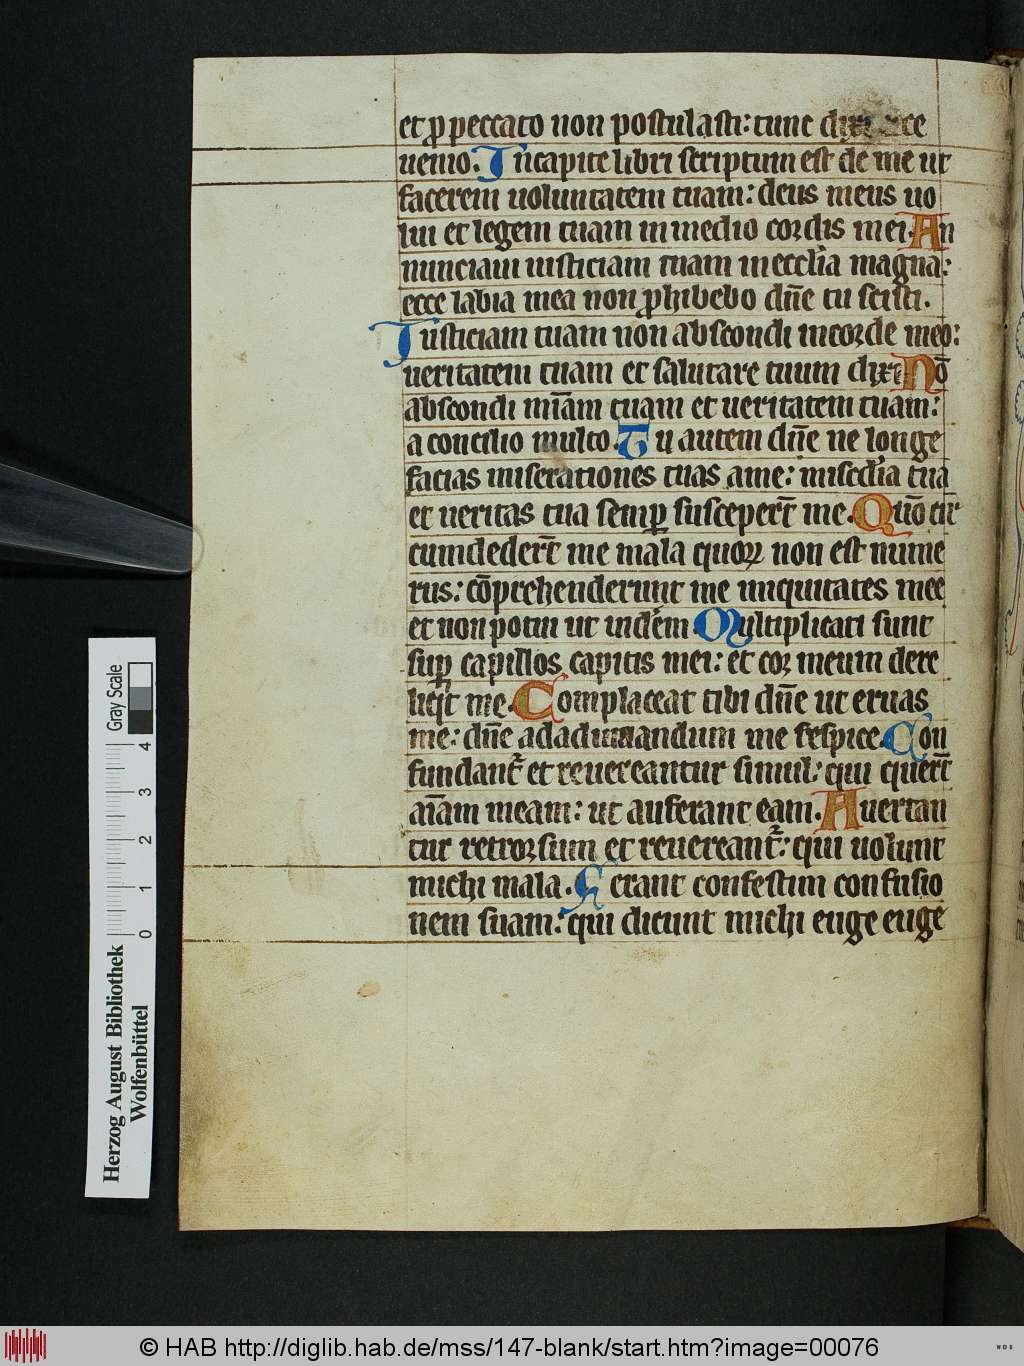 et ꝓ peccato non postulasti: tunc dixi ecce
uenio. In capite libri scriptum est de me ut
facerem uoluntatem tuam: deus meus uo
lui et legem tuam in medio cordis mei. An
nunciaui iusticiam tuam in eccl̄ia magna:
ecce labia mea non ꝓhibebo dn̄e tu scisti.
Iusticiam tuam non abscondi in corde meo:
ueritatem tuam et salutare tuum dixi. Nō
abscondi mīam tuam et ueritatem tuam:
a concilio multo. Tu autem dn̄e ne longe
facias miserationes tuas a me: miscd̄ia tua
et ueritas tua semꝑ suscepert̄ me. Quō cir
cumdedert̄ me mala quoꝝ non est nume
rus: cōprehenderunt me iniquitates mee
et non potui ut uiderem. Multiplicati sunt
suꝑ capillos capitis mei: et cor meum dere
liq̇t me. Complaceat tibi dn̄e ut eruas
me: dn̄e ad adiuuandum me respice. Con
fundant᷑ et reuereantur simul: qui quert̄
aīam meam: ut auferant eam. Auertan
tur retrorsum et reuereant᷑: qui uolunt
michi mala. Ferant confestim confusio
nem suam: qui dicunt michi euge euge
Gray Scale
4
3
2
1
0
Herzog August Bibliothek
Wolfenbüttel
© HAB http://diglib.hab.de/mss/147-blank/start.htm?image=00076